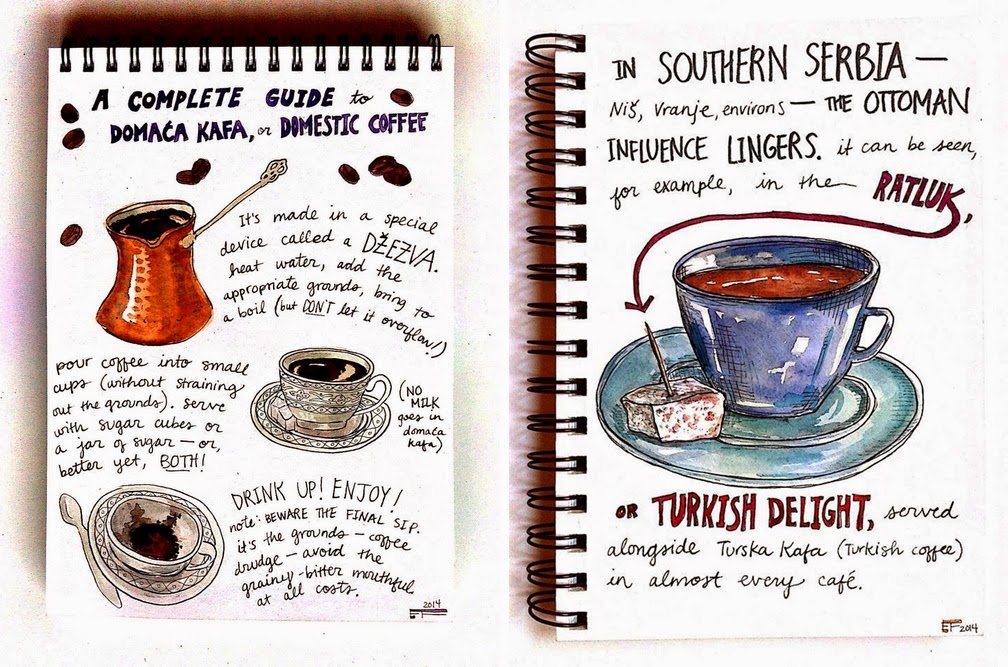 A COMPLETE GUIDE to
DOMAĆA KAFA, or DOMESTIC COFFEE
It's made in a special
device called a DŽEZVA.
heat water, add the
appropriate grounds, bring to
a boil (but DON'T let it overflow!)
pour coffee into small
cups (without straining
out the grounds). serve
with sugar cubes or
a jar of sugar — or,
better yet, BOTH!
(NO
MILK
goes in
domaća
kafa)
DRINK UP! ENJOY!
note: BEWARE THE FINAL SIP.
it's the grounds — coffee
drudge — avoid the
grainy-bitter mouthful
at all costs.
2014
EF
IN SOUTHERN SERBIA —
Niš, Vranje, environs — THE OTTOMAN
INFLUENCE LINGERS. it can be seen,
for example, in the RATLUK,
OR TURKISH DELIGHT, served
alongside Turska Kafa (Turkish coffee)
in almost every café.
EF 2014